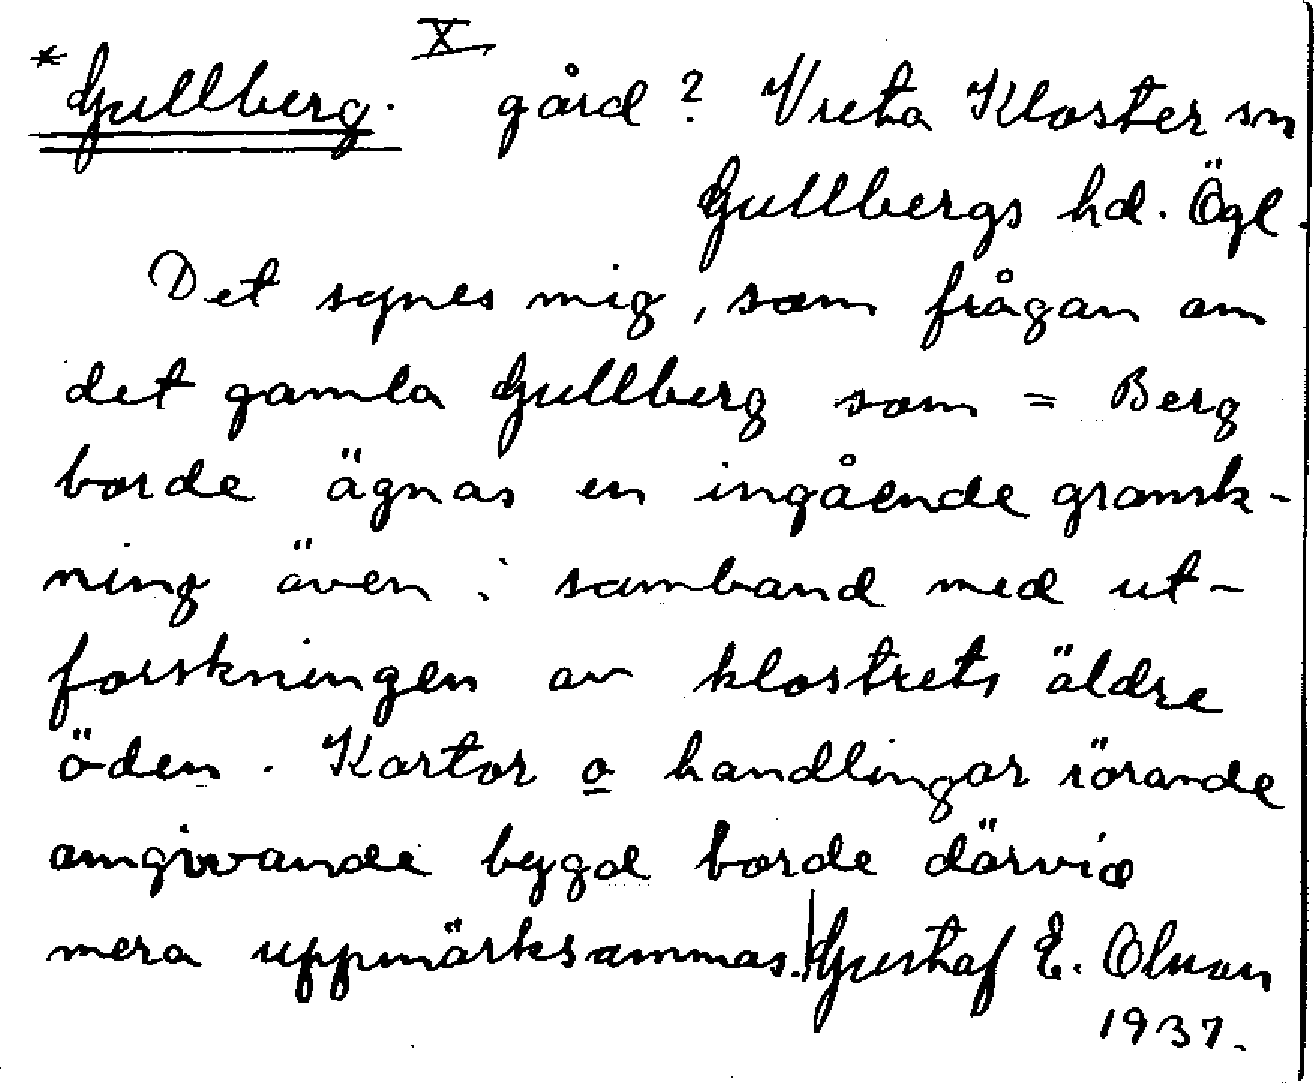 X
*Gullberg. gård? Vreta Kloster sn
Gullbergs hd. Ögl.
Det synes mig, som frågan om
det gamla Gullberg som = Berg
borde ägnas en ingående gransk-
ning även i samband med ut-
forskningen av klostrets äldre
öden. Kartor o handlingar rörande
omgivande bygd borde därvid
mera uppmärksammas. Gustaf E. Olsson
1937.